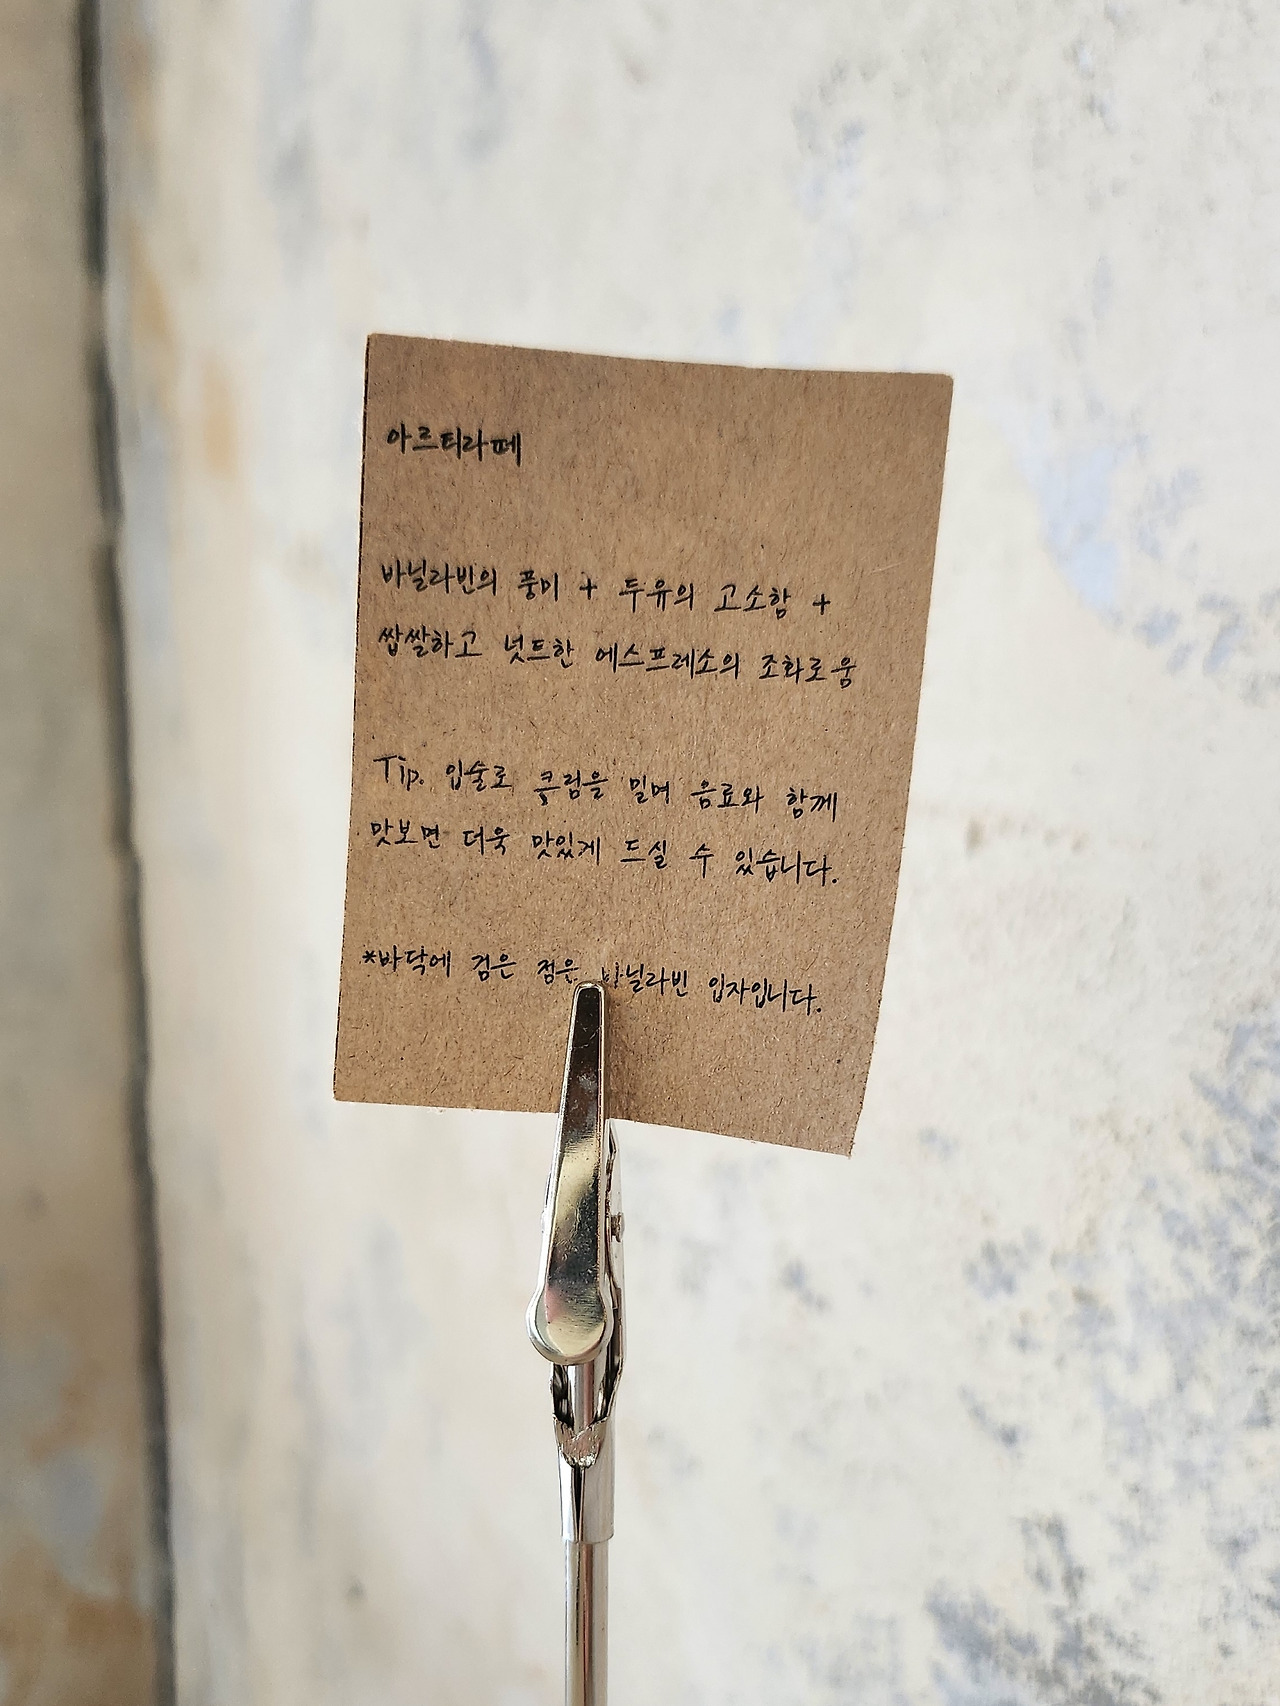 아르티라떼
바닐라빈의 풍미 + 두유의 고소함 +
쌉쌀하고 넛트한 에스프레소의 조화로움
Tip. 입술로 크림을 밀며 음료와 함께
맛보면 더욱 맛있게 드실 수 있습니다.
*바닥에 검은 점은 바닐라빈 입자입니다.